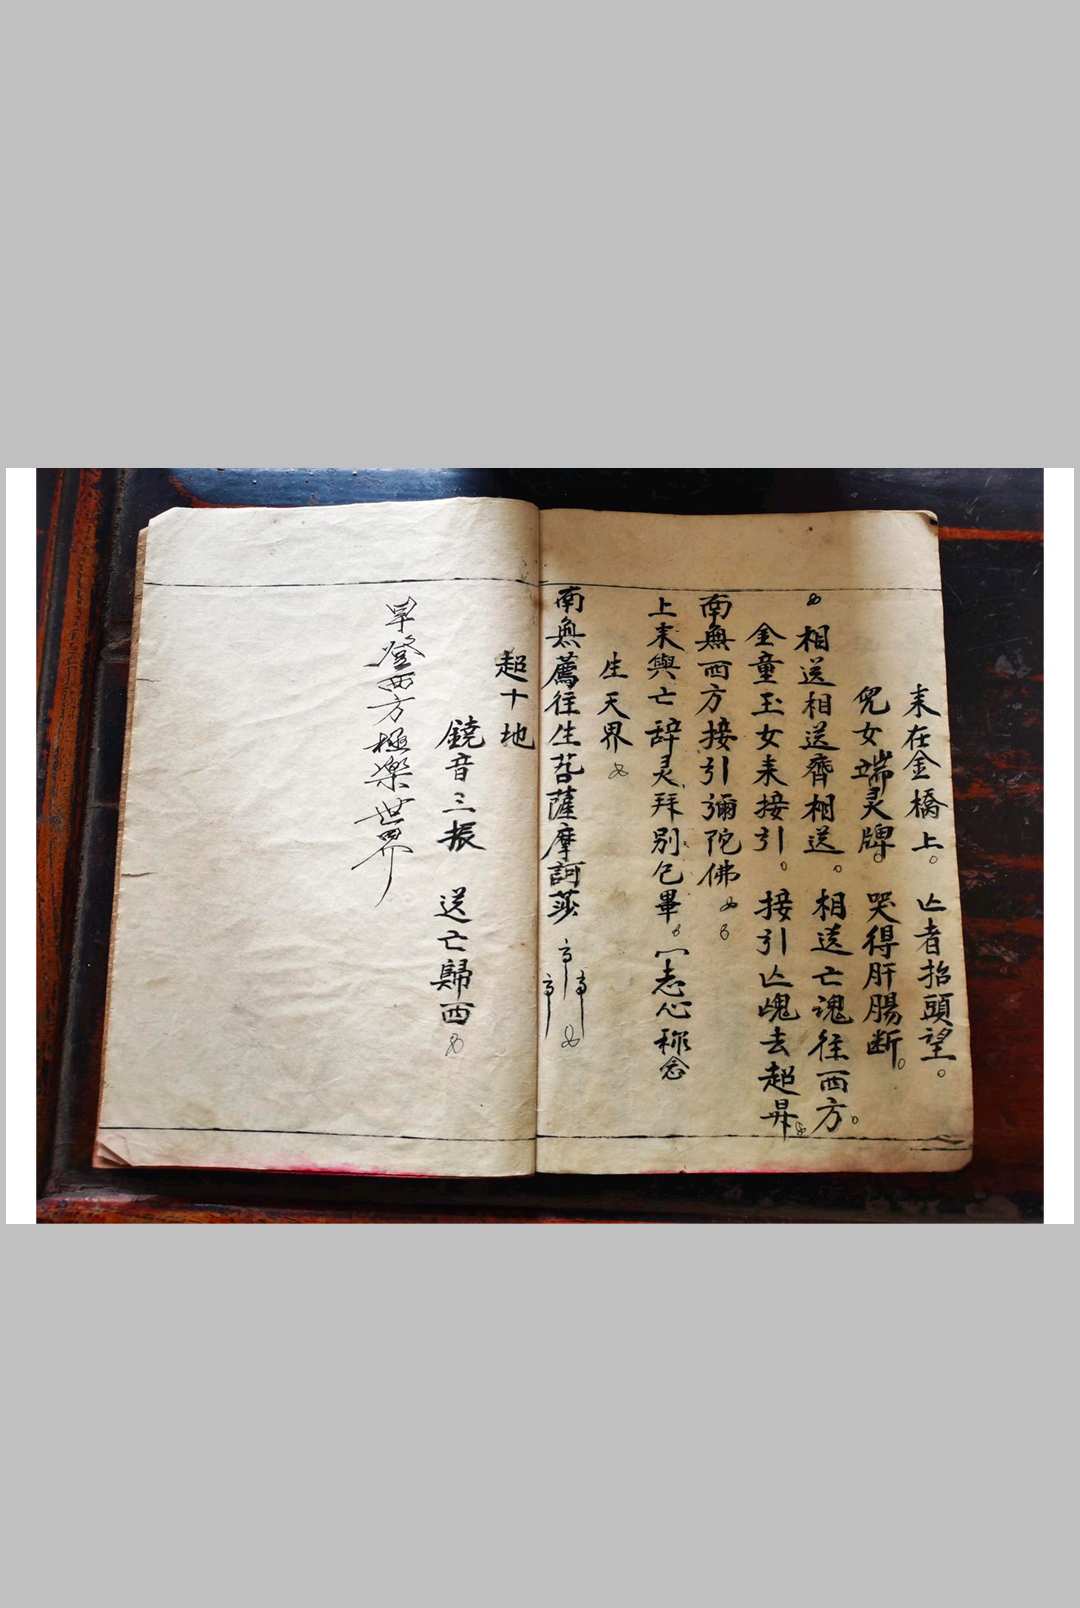 来在金橋上。亡者抬頭望。
兒女端灵牌。哭得肝腸断。
相送相送齊相送。相送亡魂往西方。
金童玉女来接引。接引亡魂去超昇。
南無西方接引彌陀佛
上来與亡辞灵拜别已畢。一志心称念
生天界
南無薦往生菩薩摩訶莎
超十地
鐃音三振 送亡歸西
早登西方極樂世界